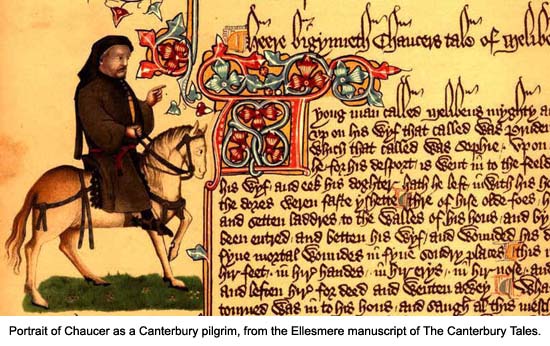 Heere bigynneth Chaucers tale of Melibe
A yong man called Melibeus myghty a
up on his wyf that called was Pruden
which that called was Sophie · Vpon
he for his desport is went in to the feeld
his wyf and eek his doghter hath he left in with his h
the dores weren faste yshette thre of hise olde foes h
and setten laddres to the walles of his hous and by
been entred and betten his wyf and wounded his d
fyue mortal woundes in fyue sondry places this i
hir feet in hir handes in hir erys in hir nose and
and leften hir for deed and wenten awey Wha
tourned was in to his hous and saugh al this mesch
Portrait of Chaucer as a Canterbury pilgrim, from the Ellesmere manuscript of The Canterbury Tales.